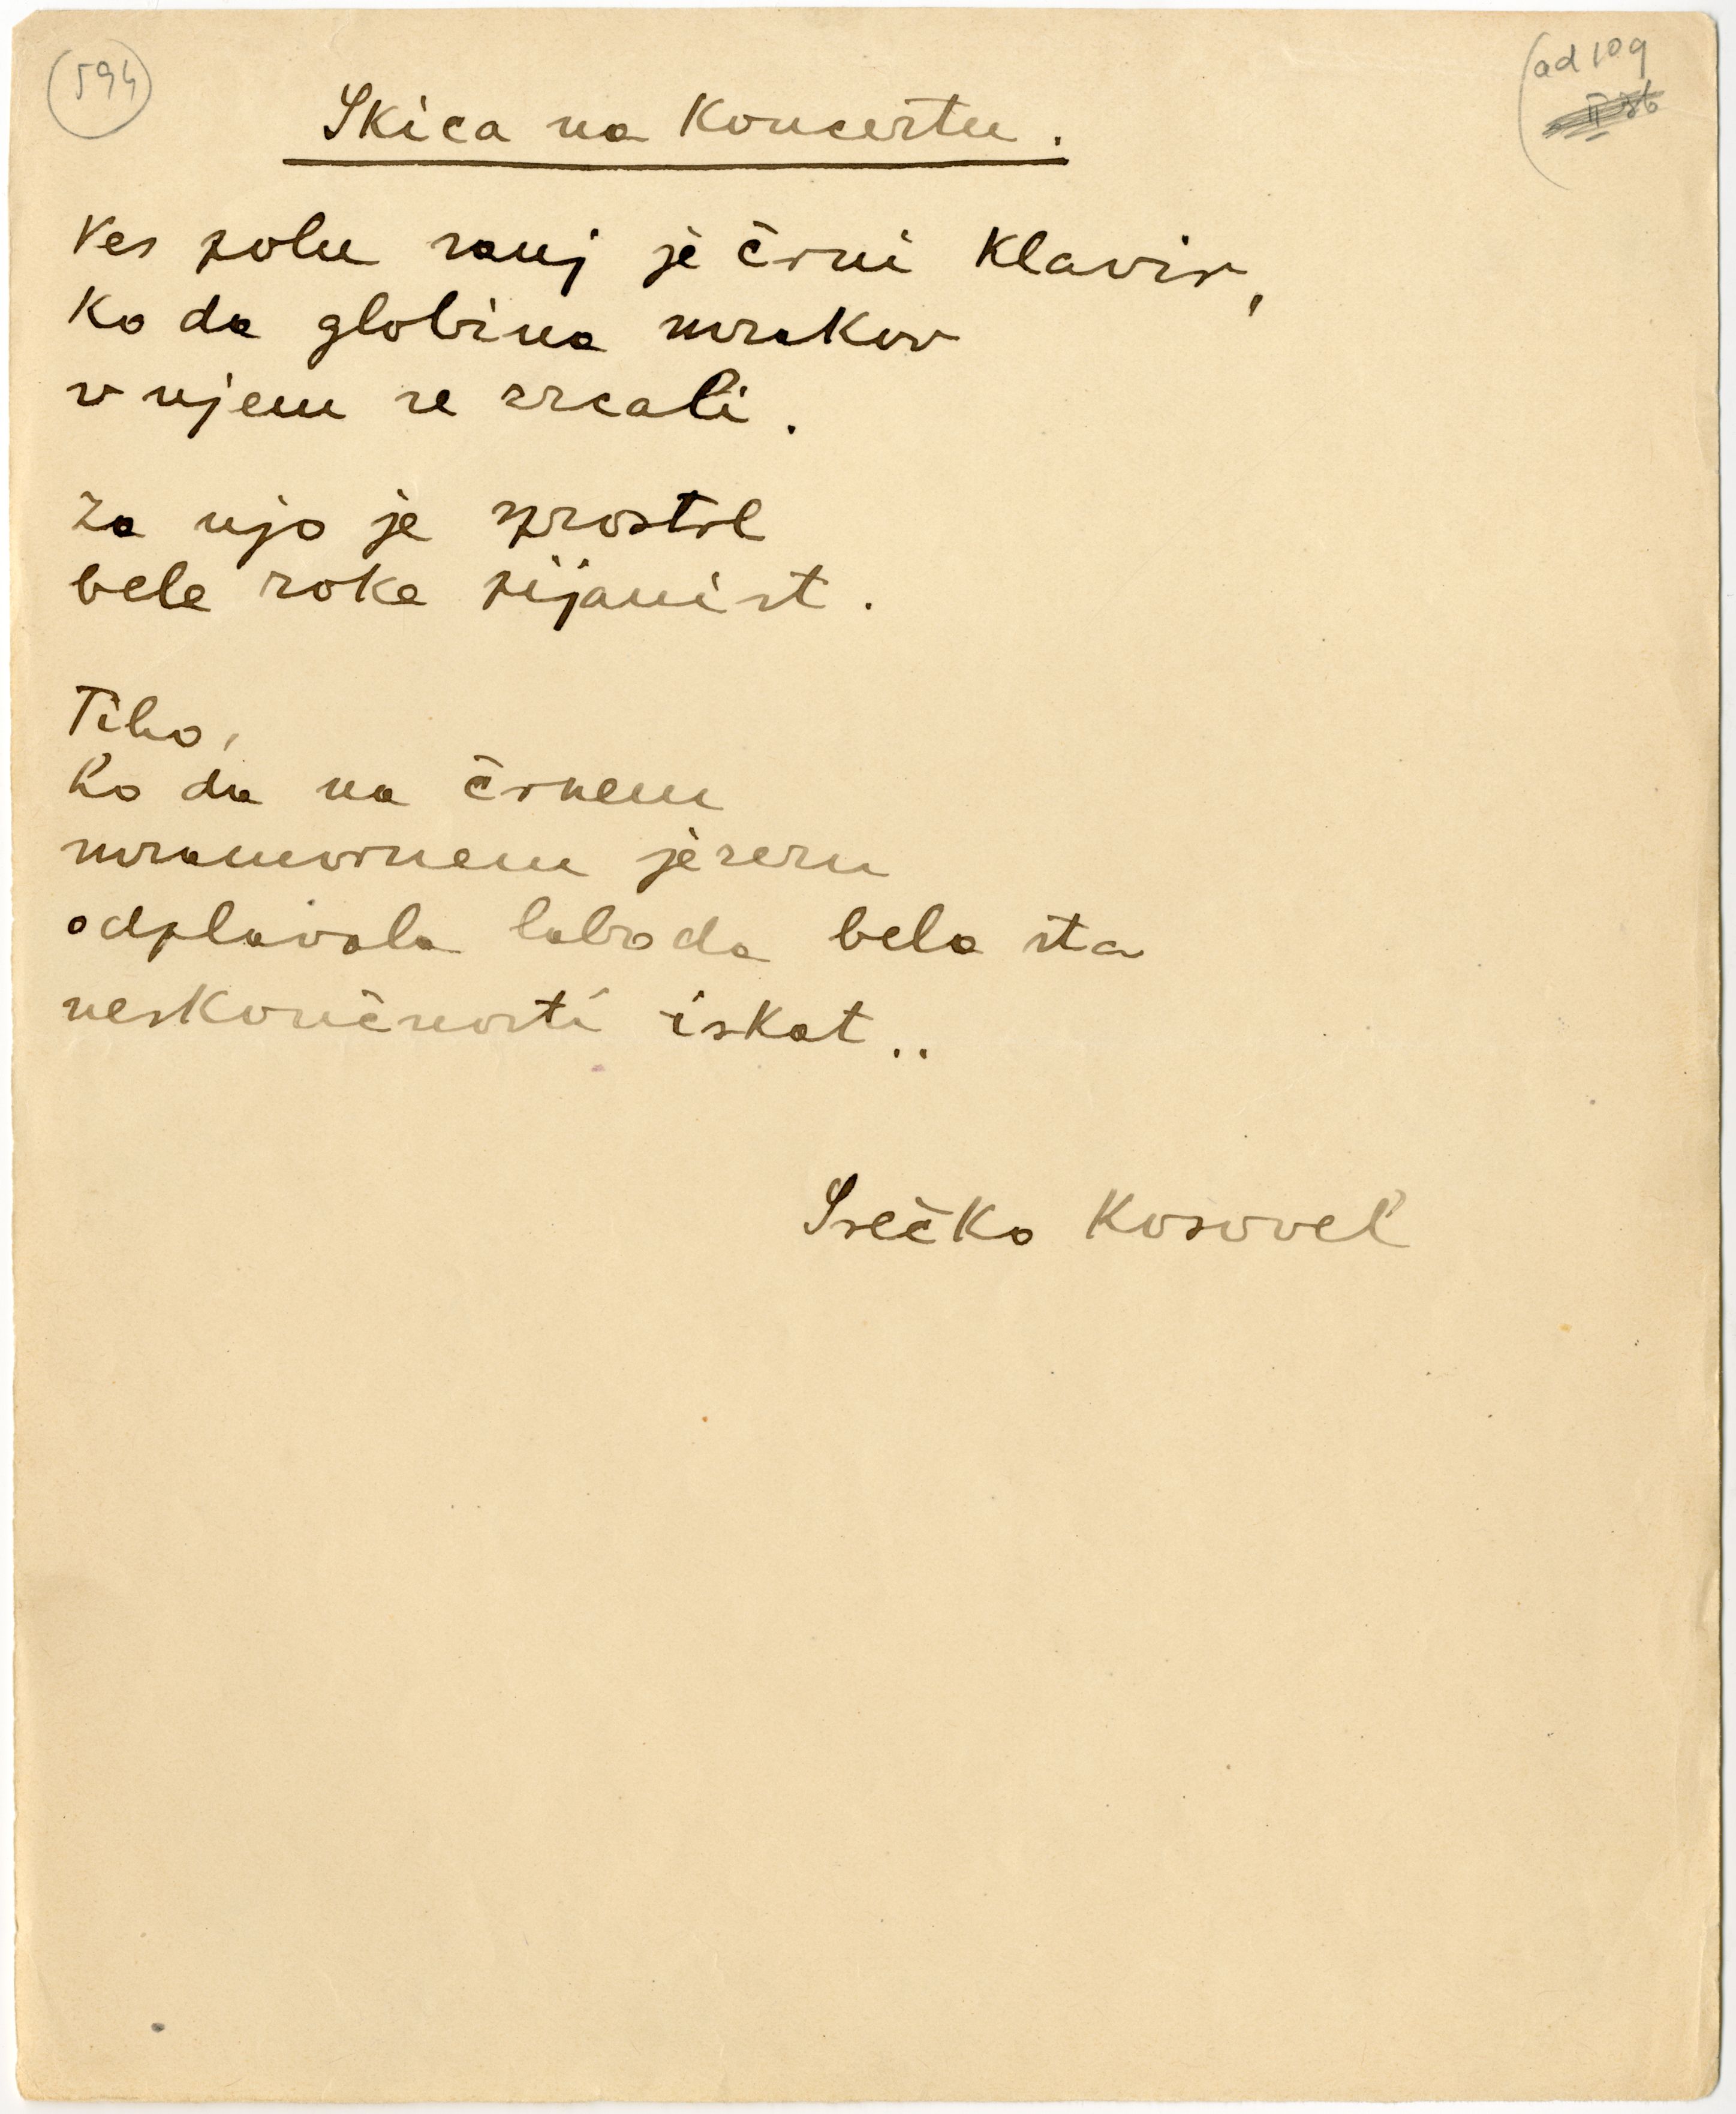 594
ad 109
Skica na koncertu.
Ves poln sanj je črni klavir,
ko da globina mrakov
v njem se zrcali.
Za njo je sprostrl
bele roke pijanist.
Tiho,
ko da na črnem
mramornem jezeru
odplavala laboda bela sta
neskončnosti iskat..
Srečko Kosovel